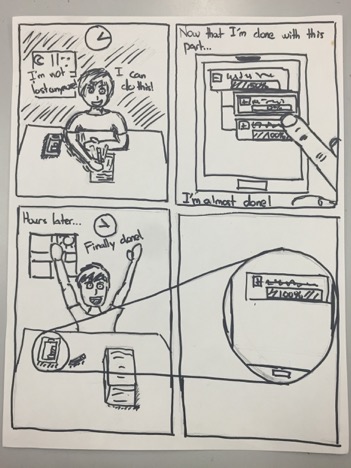 I'm not
lost anymore!
I can
do this!
Now that I'm done with this
part...
100%
100%
I'm almost done!
Hours later...
Finally done!
100%